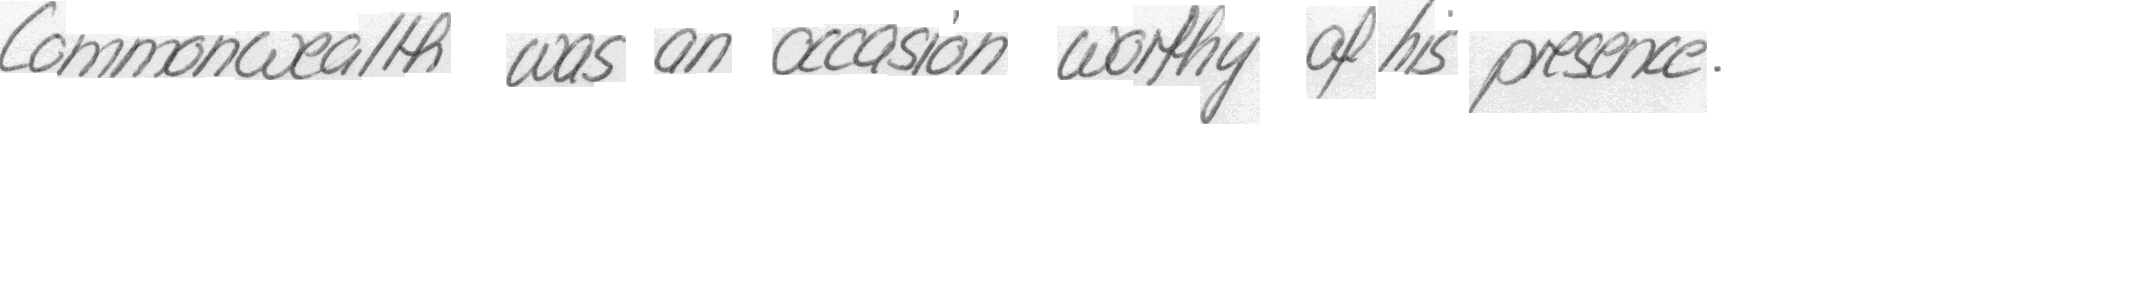 Commonwealth was an occasion worthy of his presence.